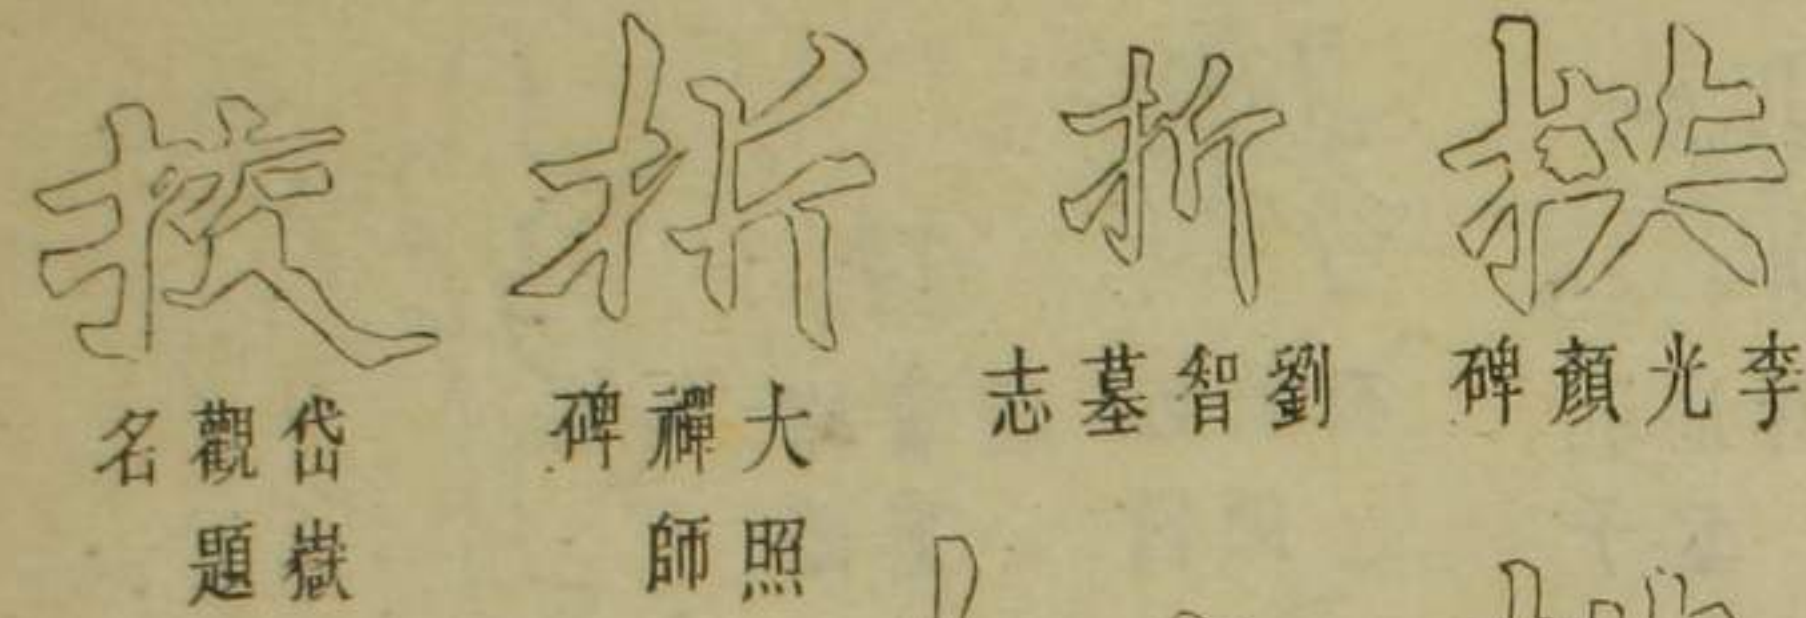 李光顏碑
折
劉智墓志
折
大照禪師碑
岱嶽觀題名